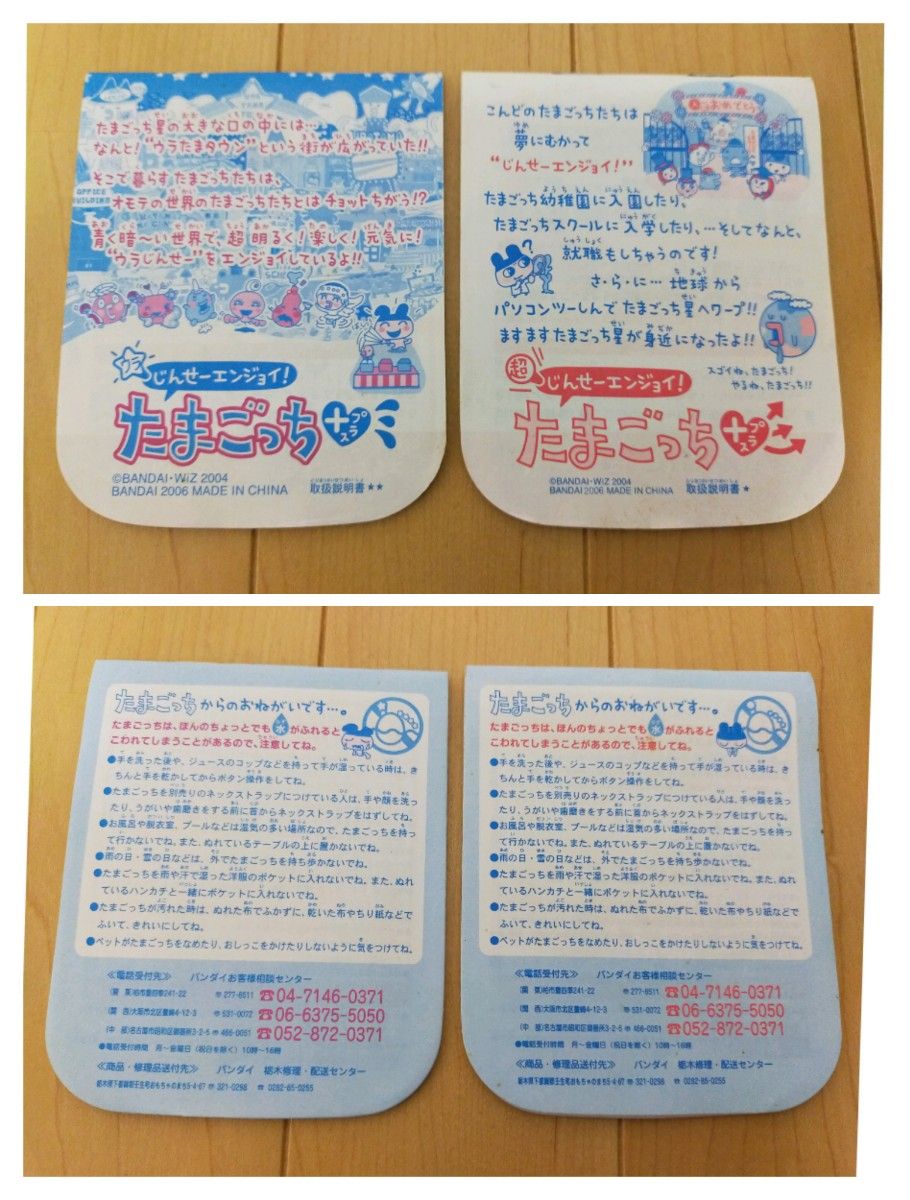 たまごっち星の大きな口の中には…
なんと!“ウラたまタウン”という街が広がっていた!!
そこで暮らすたまごっちたちは、
オモテの世界のたまごっちたちとはチョットちがう!?
青く暗〜い世界で、超明るく!楽しく!元気に!
“ウラじんせー”をエンジョイしているよ!!
ウラ じんせーエンジョイ!
たまごっち
プラス
©BANDAI・WiZ 2004
BANDAI 2006 MADE IN CHINA 取扱説明書★★
入園おめでとう
こんどのたまごっちたちは
夢にむかって
“じんせーエンジョイ!”
たまごっち幼稚園に入園したり、
たまごっちスクールに入学したり、…そしてなんと、
就職もしちゃうのです!
さ・ら・に…地球から
パソコンツーしんでたまごっち星へワープ!!
ますますたまごっち星が身近になったよ!!
スゴイね、たまごっち!
やるね、たまごっち!!
超 じんせーエンジョイ!
たまごっち
プラス
©BANDAI・WiZ 2004
BANDAI 2006 MADE IN CHINA 取扱説明書★
たまごっちからのおねがいです…。
たまごっちは、ほんのちょっとでも水がふれると
こわれてしまうことがあるので、注意してね。
●手を洗った後や、ジュースのコップなどを持って手が湿っている時は、き
ちんと手を乾かしてからボタン操作をしてね。
●たまごっちを別売りのネックストラップにつけている人は、手や顔を洗っ
たり、うがいや歯磨きをする前に首からネックストラップをはずしてね。
●お風呂や脱衣室、プールなどは湿気の多い場所なので、たまごっちを持っ
て行かないでね。また、ぬれているテーブルの上に置かないでね。
●雨の日・雪の日などは、外でたまごっちを持ち歩かないでね。
●たまごっちを雨や汗で湿った洋服のポケットに入れないでね。また、ぬれ
ているハンカチと一緒にポケットに入れないでね。
●たまごっちが汚れた時は、ぬれた布でふかずに、乾いた布やちり紙などで
ふいて、きれいにしてね。
●ペットがたまごっちをなめたり、おしっこをかけたりしないように気をつけてね。
≪電話受付先≫ バンダイお客様相談センター
(関 東)柏市豊四季241-22 〒277-8511 ☎04-7146-0371
(関 西)大阪市北区豊崎4-12-3 〒531-0072 ☎06-6375-5050
(中 部)名古屋市昭和区御器所3-2-5 〒466-0051 ☎052-872-0371
●電話受付時間 月〜金曜日(祝日を除く)10時〜16時
≪商品・修理品送付先≫ バンダイ 栃木修理・配送センター
栃木県下都賀郡壬生町おもちゃのまち5-4-67 〒321-0298 ☎0282-85-0255
たまごっちからのおねがいです…。
たまごっちは、ほんのちょっとでも水がふれると
こわれてしまうことがあるので、注意してね。
●手を洗った後や、ジュースのコップなどを持って手が湿っている時は、き
ちんと手を乾かしてからボタン操作をしてね。
●たまごっちを別売りのネックストラップにつけている人は、手や顔を洗っ
たり、うがいや歯磨きをする前に首からネックストラップをはずしてね。
●お風呂や脱衣室、プールなどは湿気の多い場所なので、たまごっちを持っ
て行かないでね。また、ぬれているテーブルの上に置かないでね。
●雨の日・雪の日などは、外でたまごっちを持ち歩かないでね。
●たまごっちを雨や汗で湿った洋服のポケットに入れないでね。また、ぬれ
ているハンカチと一緒にポケットに入れないでね。
●たまごっちが汚れた時は、ぬれた布でふかずに、乾いた布やちり紙などで
ふいて、きれいにしてね。
●ペットがたまごっちをなめたり、おしっこをかけたりしないように気をつけてね。
≪電話受付先≫ バンダイお客様相談センター
(関 東)柏市豊四季241-22 〒277-8511 ☎04-7146-0371
(関 西)大阪市北区豊崎4-12-3 〒531-0072 ☎06-6375-5050
(中 部)名古屋市昭和区御器所3-2-5 〒466-0051 ☎052-872-0371
●電話受付時間 月〜金曜日(祝日を除く)10時〜16時
≪商品・修理品送付先≫ バンダイ 栃木修理・配送センター
栃木県下都賀郡壬生町おもちゃのまち5-4-67 〒321-0298 ☎0282-85-0255